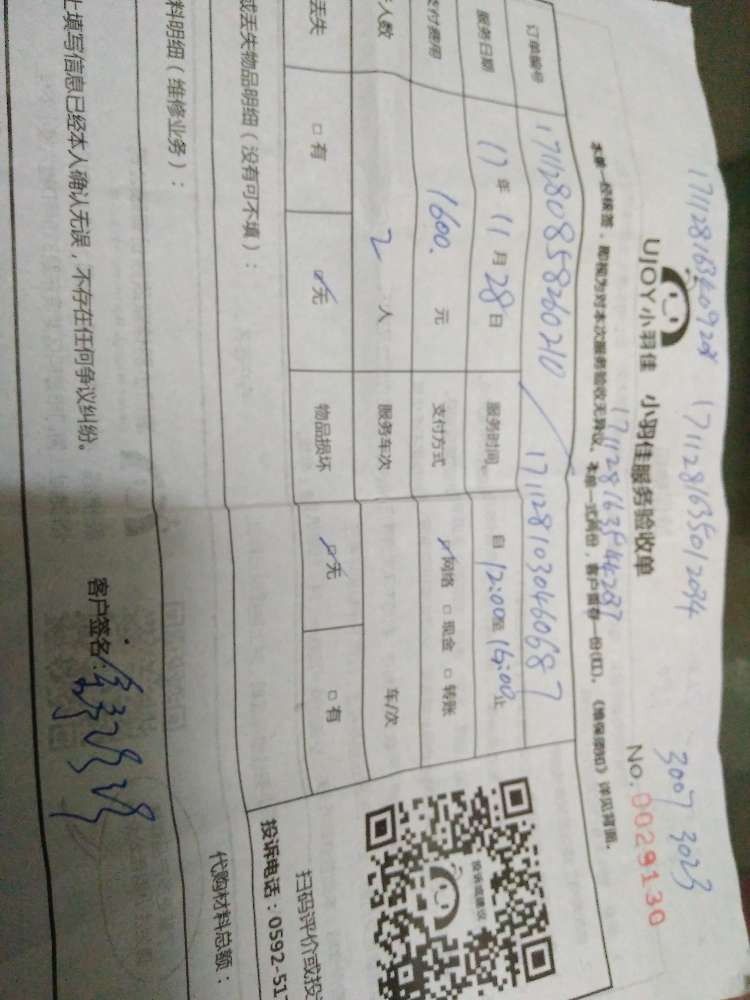 3007 3023
171128163409208 1711281635012034
No. 0029130
UJOY小羽佳 小羽佳服务验收单
171128163544287
本单一经核签，即视为对本次服务验收无异议。本单一式两份，客户留存一份(红)。《维保须知》详见背面。
订单编号 1711280858260210 1711281030460687
服务日期 17年11月28日 服务时间 自12:00至16:00止
支付费用 1600.元 支付方式 ☑网络 □现金 □转账
人数 2人 服务车次 车/次
丢失 □有 ☑无 物品损坏 ☑无 □有
或丢失物品明细（没有可不填）：
料明细（维修业务）：
代购材料总额：
扫码评价或投
投诉电话：0592-517
上填写信息已经本人确认无误，不存在任何争议纠纷。
客户签名：